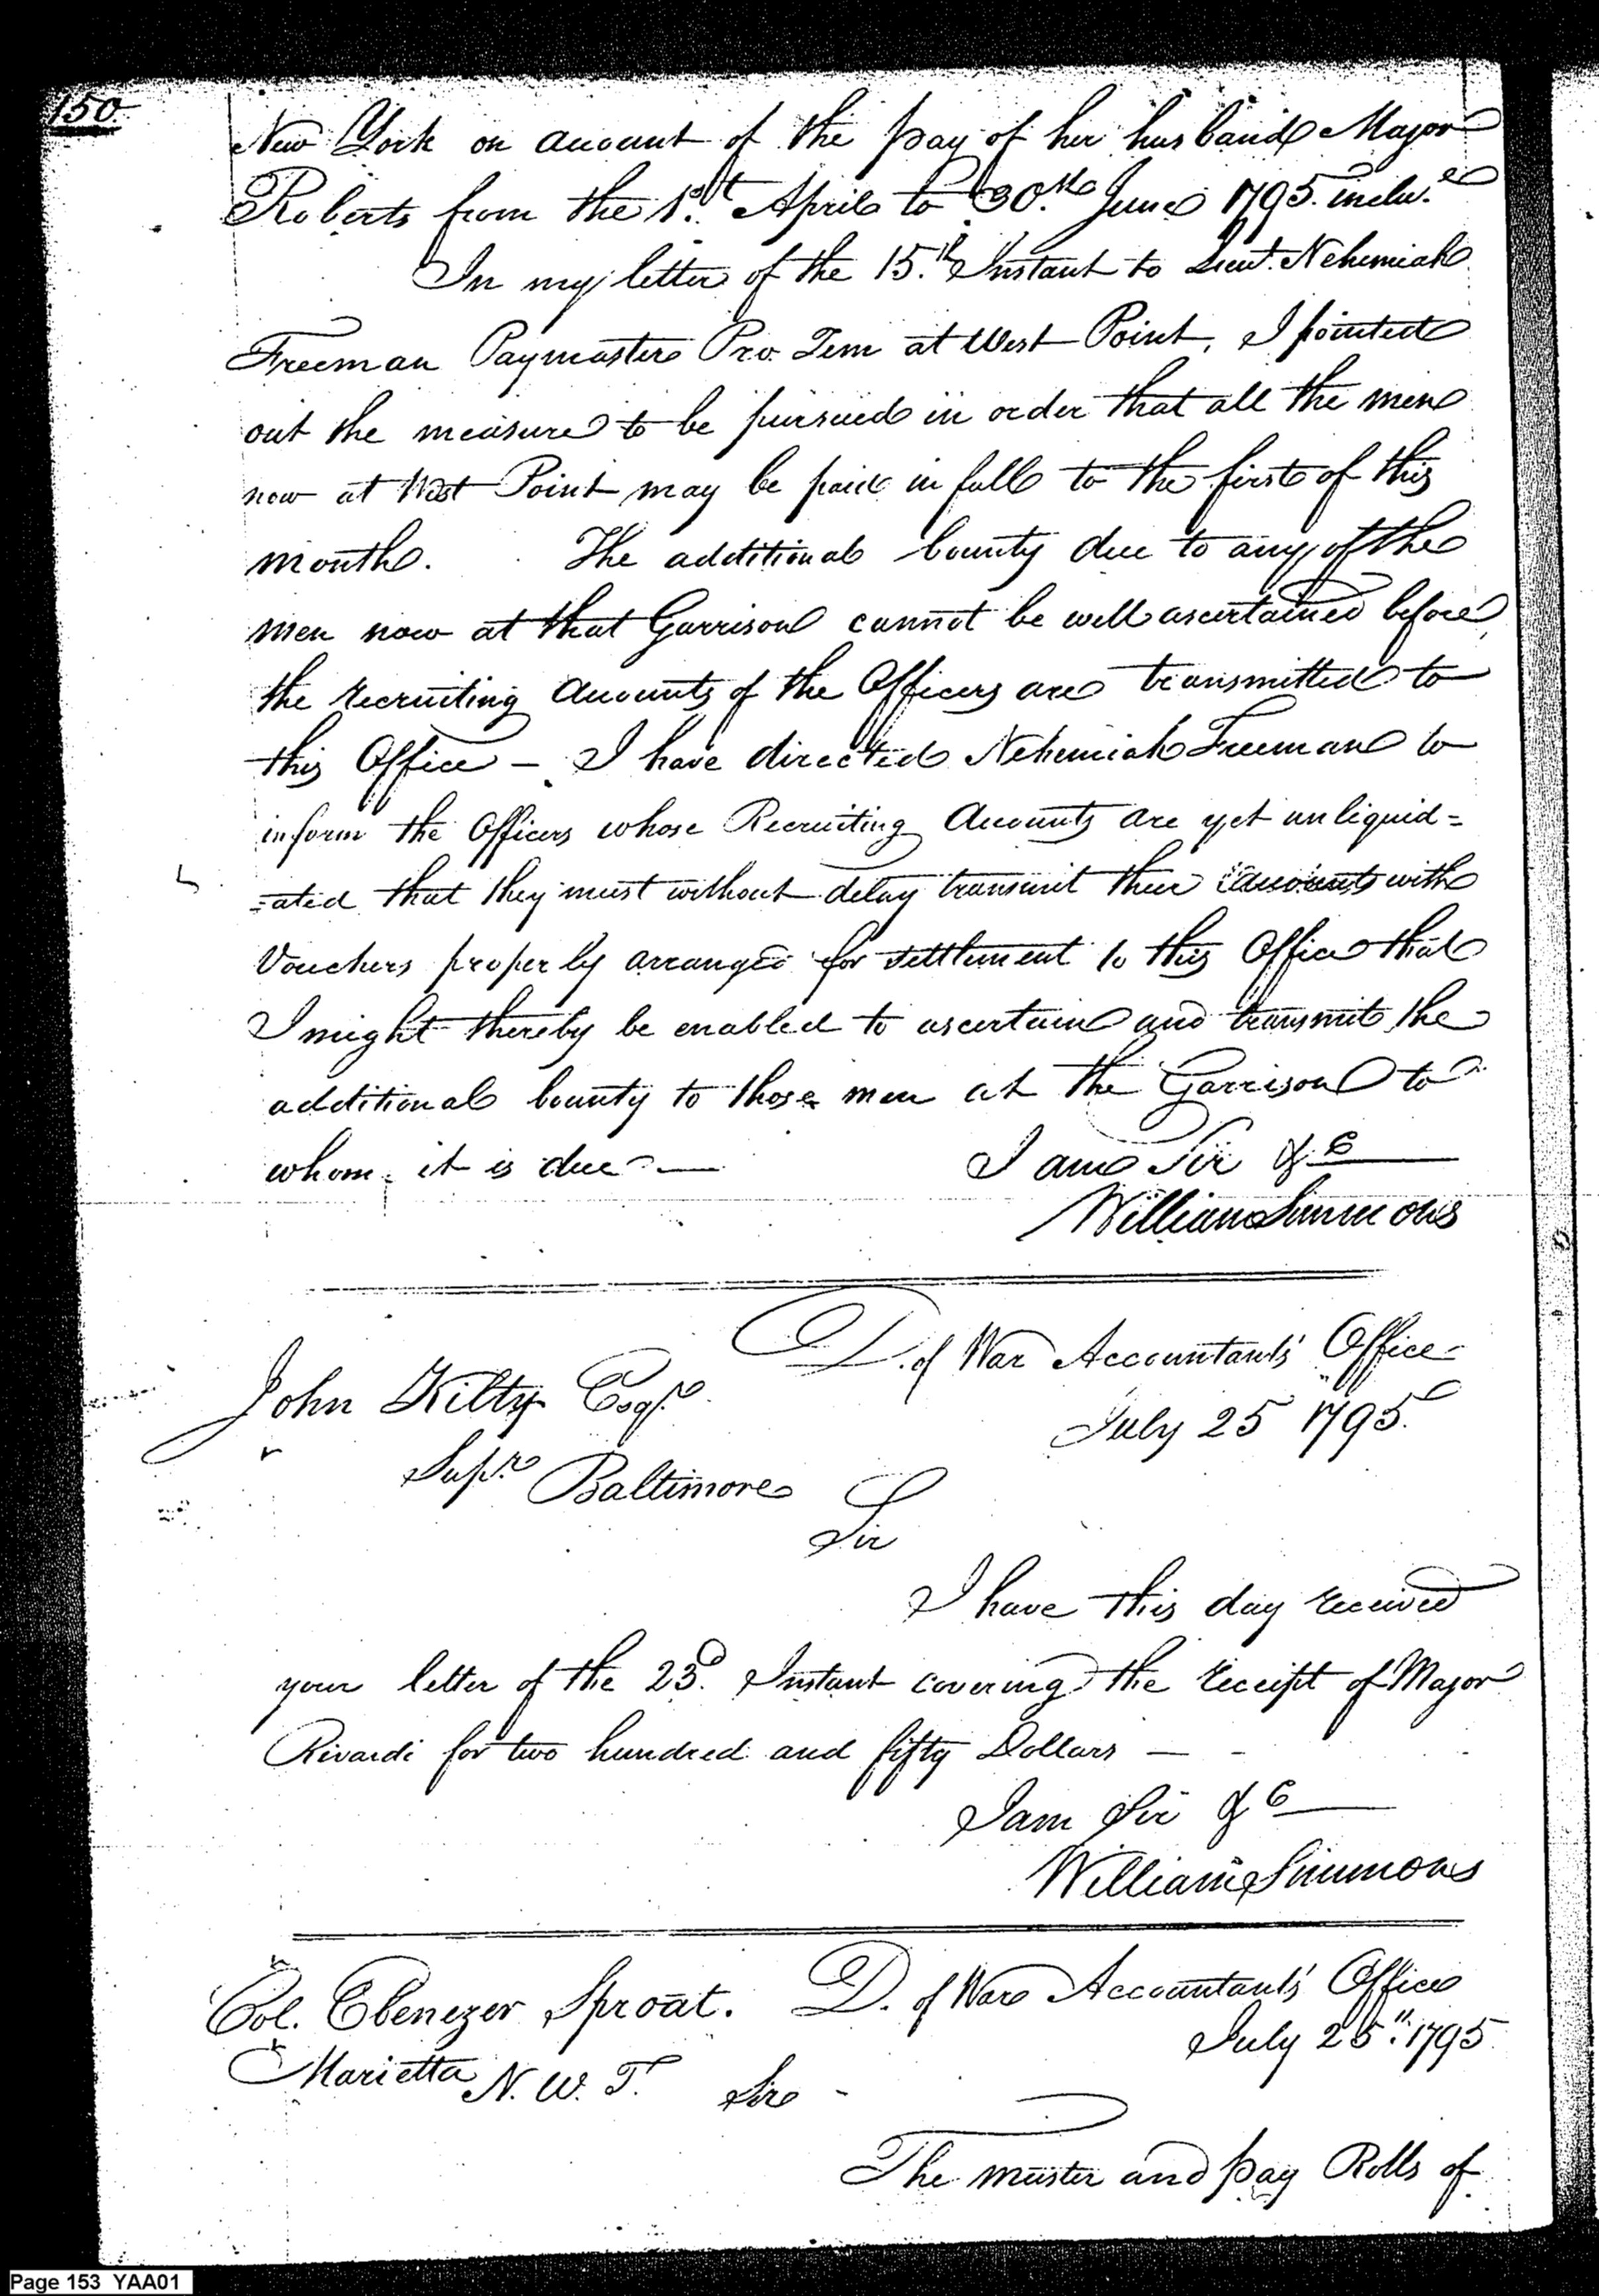 150.
New York on account of the pay of her husband Major
Roberts from the 1.st April to 30.th June 1795. inclu.e
In my letter of the 15.th Instant to Lieut. Nehemiah
Freeman Paymaster Pro. Tem at West Point, I pointed
out the measure to be pursued in order that all the men
now at West Point may be paid in full to the first of this
month. The additional bounty due to any of the
men now at that Garrison cannot be well ascertained before
the recruiting Accounts of the Officers are transmitted to
this Office – I have directed Nehemiah Freeman to
inform the Officers whose Recruiting Accounts are yet unliquid=
=ated that they must without delay transmit their accounts with
Vouchers properly arranged for settlement to this Office that
I might thereby be enabled to ascertain and transmit the
additional bounty to those men at the Garrison to
whom it is due —
I am Sir &c
William Simmons
D. of War Accountants' Office
John Kilty Esqr.
July 25 1795.
Supr. Baltimore
Sir
I have this day received
your letter of the 23d. Instant covering the receipt of Major
Rivardi for two hundred and fifty Dollars —
I am Sir &c
William Simmons
Col. Ebenezer Sproat. D. of War Accountants' Office
July 25". 1795
Marietta N. W. T. Sir
The muster and pay Rolls of
Page 153 YAA01